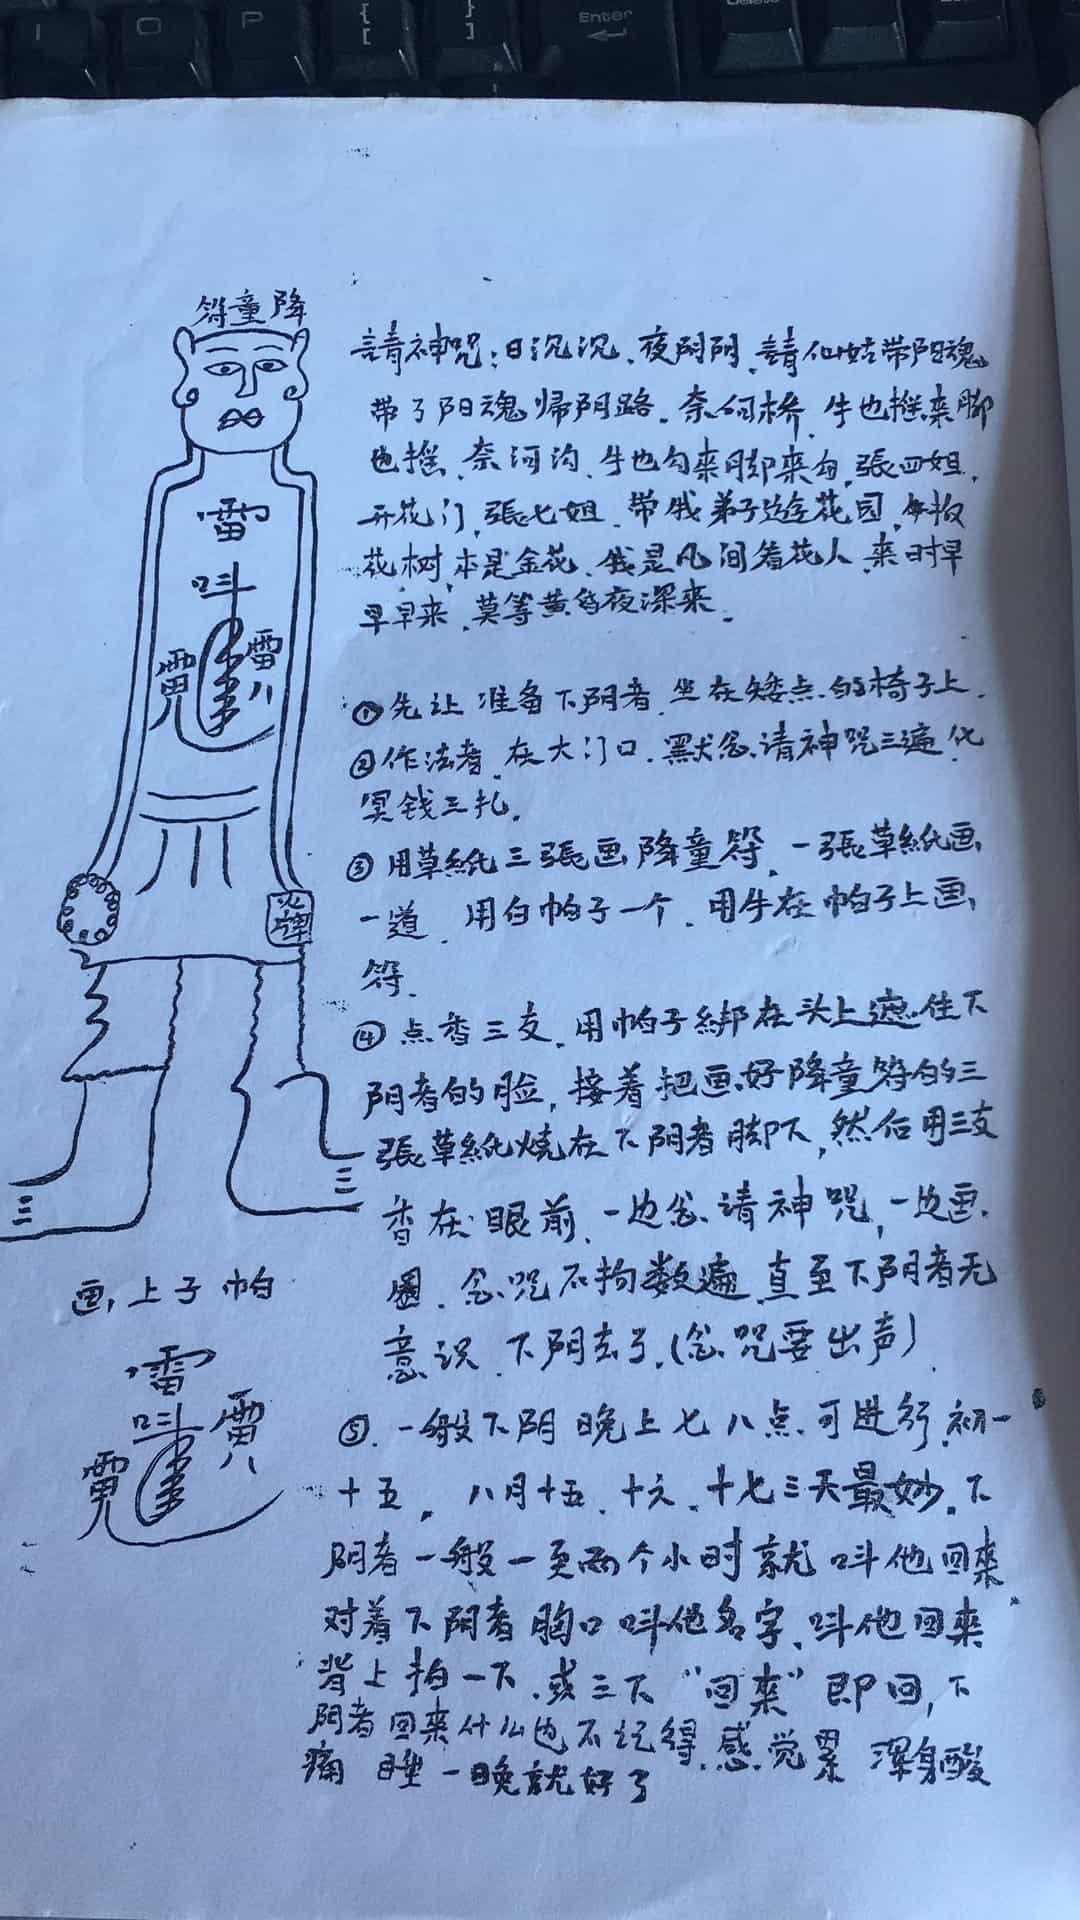 I
O
P
{
[
}
]
Enter
Delete
符童降
請神咒：日沉沉、夜阴阴、請仙姑带阳魂
带了阳魂归阴路。奈何桥、牛也摇来脚
也摇、奈河沟、牛也勾来脚来勾，張四姐、
开花门，張七姐、带我弟子遊花园，
花树本是金花、我是凡间看花人、来时早
早早来、莫等黄昏夜深来。
雷
叫
雷
八
①先让准备下阴者、坐在矮点的椅子上、
②作法者、在大门口、默念请神咒三遍化
冥钱三扎。
③用草紙三張画降童符、一張草紙画
一道、用白帕子一个、用牛在帕子上画
符、
④点香三支、用帕子绑在头上遮住下
阴者的脸，接着把画好降童符的三
張草紙烧在下阴者脚下，然后用三支
香在眼前、一边念请神咒，一边画
圈、念咒不拘数遍、直至下阴者无
意识、下阴去了、(念咒要出声)
⑤、一般下阴晚上七八点可进行、初一
十五。八月十五、十六、十七三天最妙。下
阴者一般一至两个小时就叫他回来、
对着下阴者胸口叫他名字、叫他回来
背上拍一下、或三下“回来”即回，下
阴者回来什么也不记得、感觉累浑身酸
痛睡一晚就好了
牌
三
三
画上子帕
雷
叫